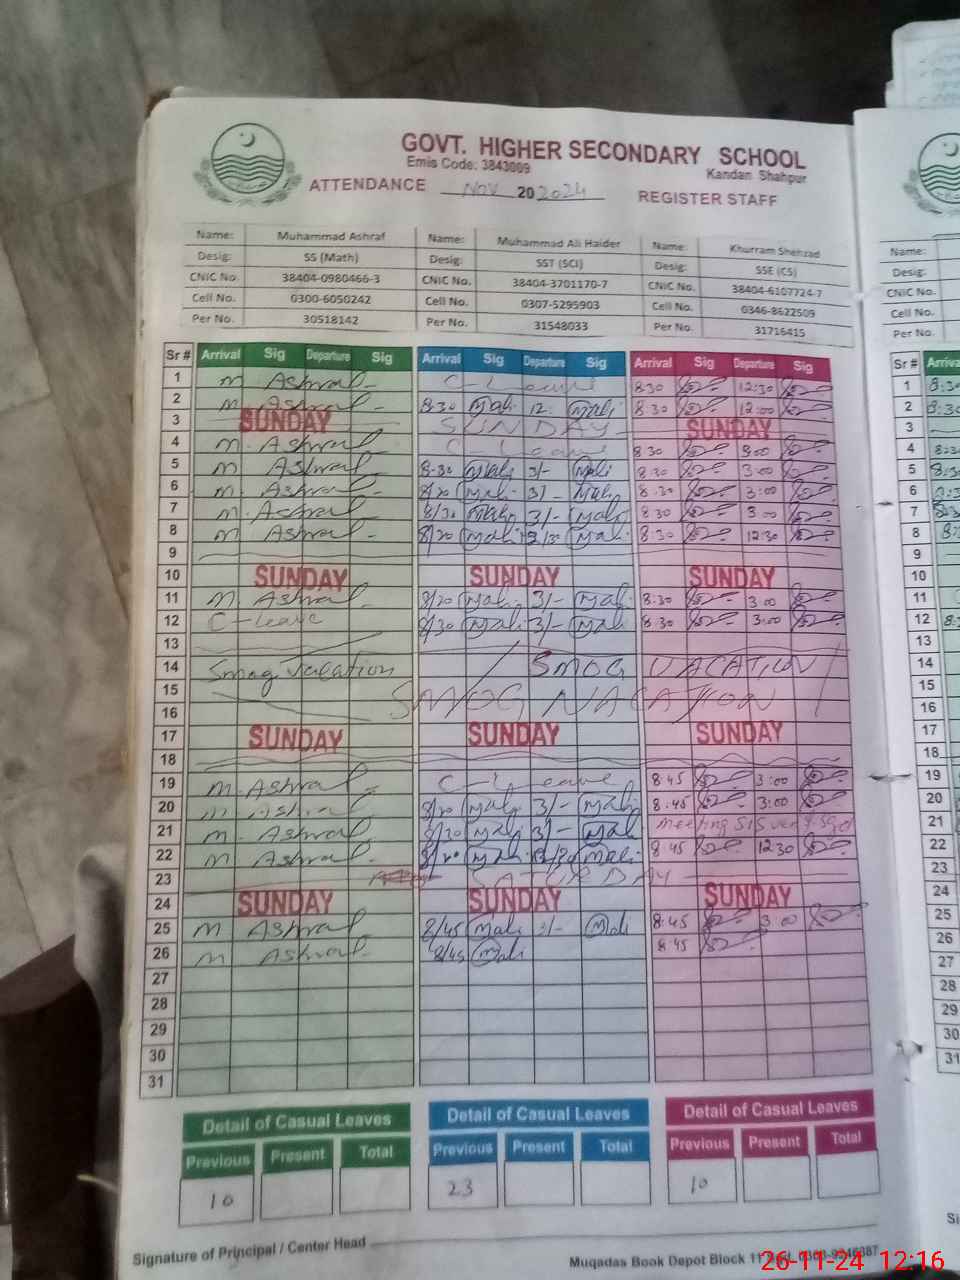 GOVT. HIGHER SECONDARY SCHOOL
Emis Code: 3843009 Kandan Shahpur
ATTENDANCE Nov 20 2024 REGISTER STAFF
Name: Muhammad Ashraf Name: Muhammad Ali Haider Name: Khurram Shehzad
Desig: SS (Math) Desig: SST (SCI) Desig: SSE (CS)
CNIC No. 38404-0980466-3 CNIC No. 38404-3701170-7 CNIC No. 38404-6107724-7
Cell No. 0300-6050242 Cell No. 0307-5295903 Cell No. 0346-8622509
Per No. 30518142 Per No. 31548033 Per No. 31716415
Sr # Arrival Sig Departure Sig Arrival Sig Departure Sig Arrival Sig Departure Sig
1 M Ashraf C-Leave 8:30 12:30
2 M. Ashraf 8:30 Mali 12: Mali 8:30 12:00
3 SUNDAY SUNDAY SUNDAY
4 M. Ashraf C Leave 8 30
5 M Ashraf 8-30 Mali 3/- Mali 8:30 3:00
6 M. Ashraf Mali 3/- Mali 8:30 3:00
7 M. Ashraf 8/30 Mali 3/- Mali 8:30 3:00
8 M Ashraf Mali Mali 8:30 12:30
9
10 SUNDAY SUNDAY SUNDAY
11 M. Ashraf Mali 3/- Mali 8:30 3:00
12 C-leave 8/30 Mali 3/- Mali 8:30 3:00
13
14 Smog Vacation SMOG VACATION
15 SMOG VACATION
16
17 SUNDAY SUNDAY SUNDAY
18
19 M. Ashraf C-Leave 8 45 3:00
20 M. Ashraf Mali 3/- Mali 8:45 3:00
21 M. Ashraf 8/30 Mali 3/- Mali Meeting
22 M Ashraf Mali Mali 8 45 12:30
23 SATURDAY
24 SUNDAY SUNDAY SUNDAY
25 M Ashraf 8/45 Mali 3/- Mali 8:45 3:00
26 M Ashraf 8/45 Mali 8:45
27
28
29
30
31
Detail of Casual Leaves Detail of Casual Leaves Detail of Casual Leaves
Previous Present Total Previous Present Total Previous Present Total
10 23 10
Signature of Principal / Center Head
Muqadas Book Depot Block 11
26-11-24 12:16